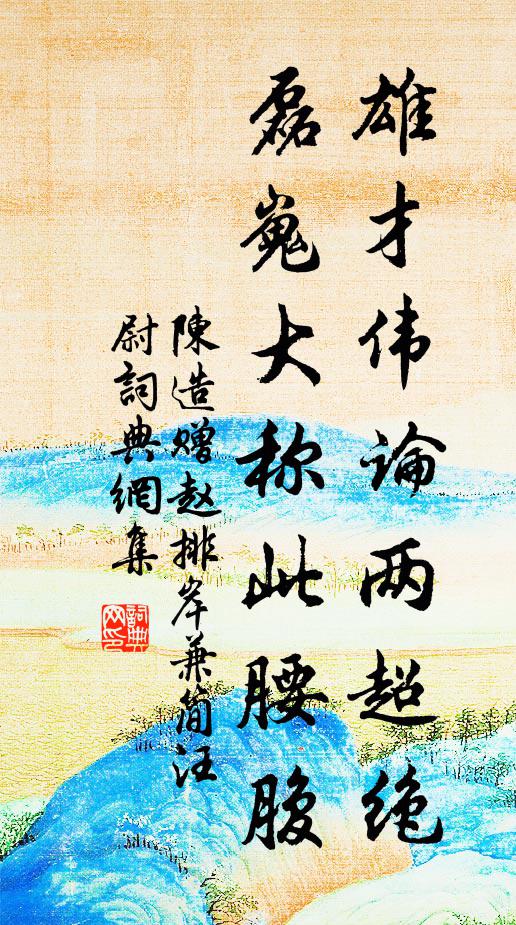 雄才伟論两超絶
磊嵬大称此腰腹
陳造赠赵排岸兼简汪
尉詞典網集
詞典
网印